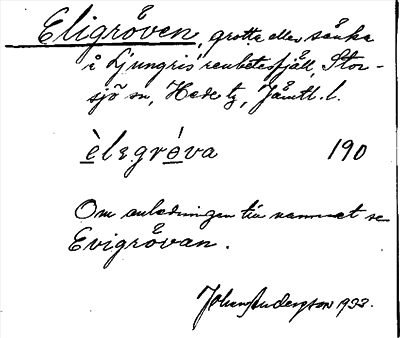 Eligråven, grotta eller sänka
i Ljungris' renbetesfjäll, Stor-
sjö sn, Hede tg, Jämtl. l.
èlegrǻva 190
Om anledningen till namnet se
Evigråvan.
Johan Anderzson 1933.